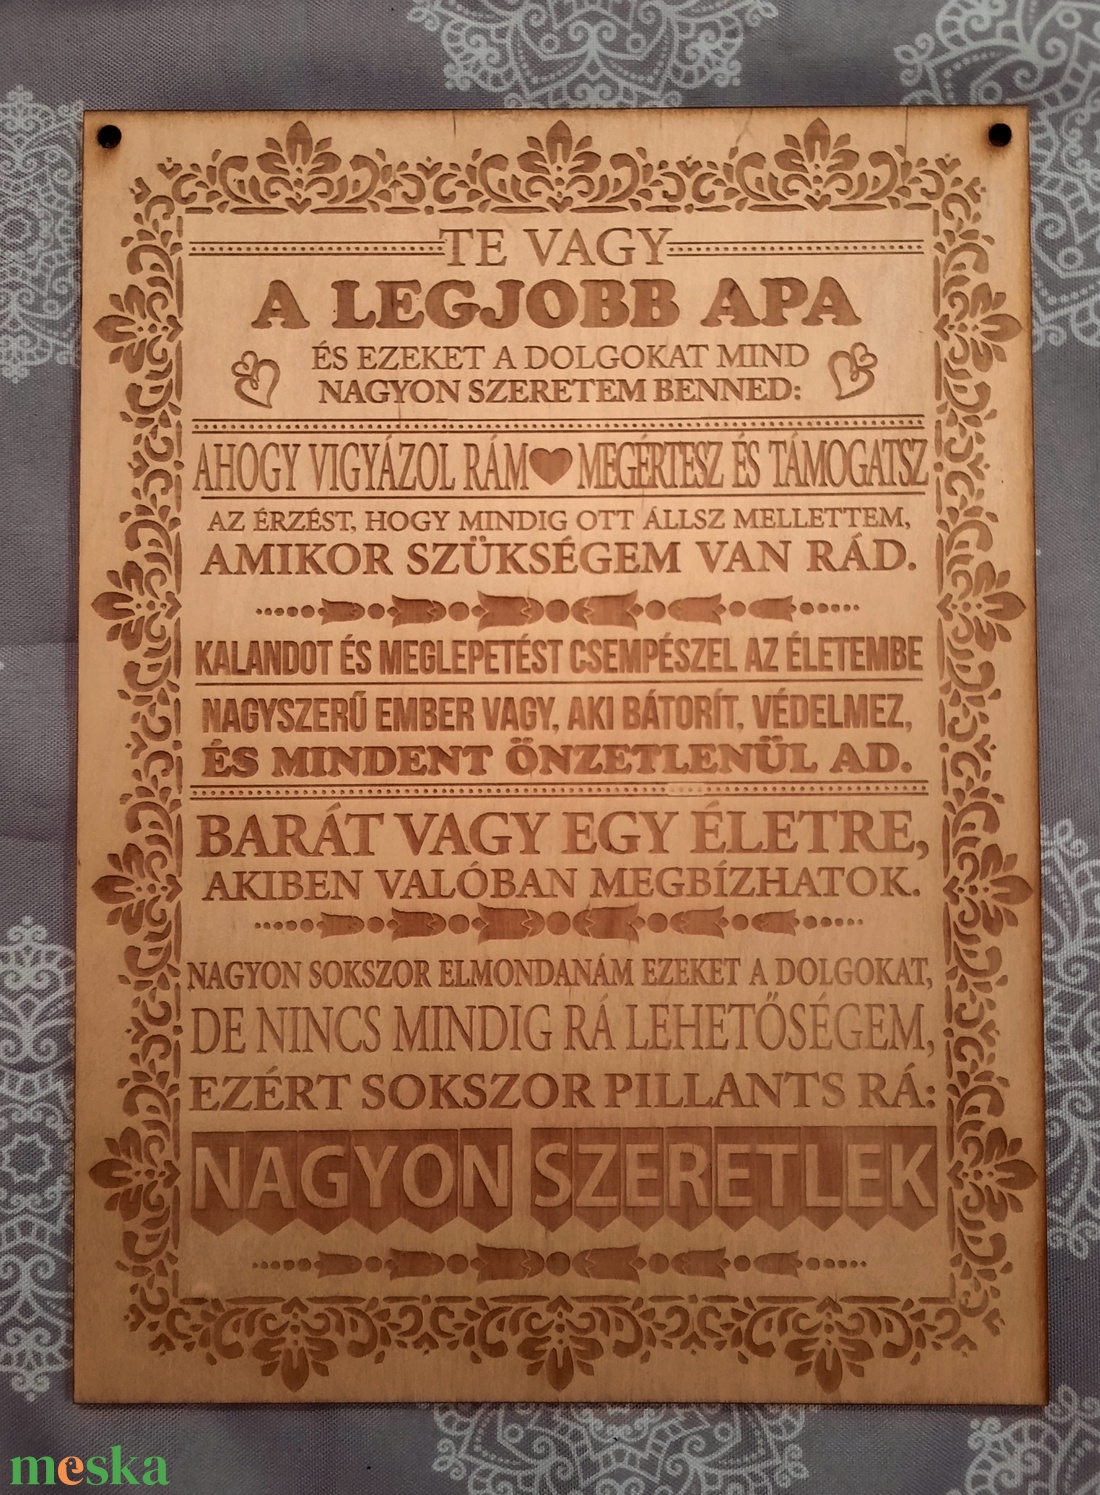 TE VAGY
A LEGJOBB APA
ÉS EZEKET A DOLGOKAT MIND
NAGYON SZERETEM BENNED:
AHOGY VIGYÁZOL RÁM MEGÉRTESZ ÉS TÁMOGATSZ
AZ ÉRZÉST, HOGY MINDIG OTT ÁLLSZ MELLETTEM,
AMIKOR SZÜKSÉGEM VAN RÁD.
KALANDOT ÉS MEGLEPETÉST CSEMPÉSZEL AZ ÉLETEMBE
NAGYSZERŰ EMBER VAGY, AKI BÁTORÍT, VÉDELMEZ,
ÉS MINDENT ÖNZETLENÜL AD.
BARÁT VAGY EGY ÉLETRE,
AKIBEN VALÓBAN MEGBÍZHATOK.
NAGYON SOKSZOR ELMONDANÁM EZEKET A DOLGOKAT,
DE NINCS MINDIG RÁ LEHETŐSÉGEM,
EZÉRT SOKSZOR PILLANTS RÁ:
NAGYON SZERETLEK
meska